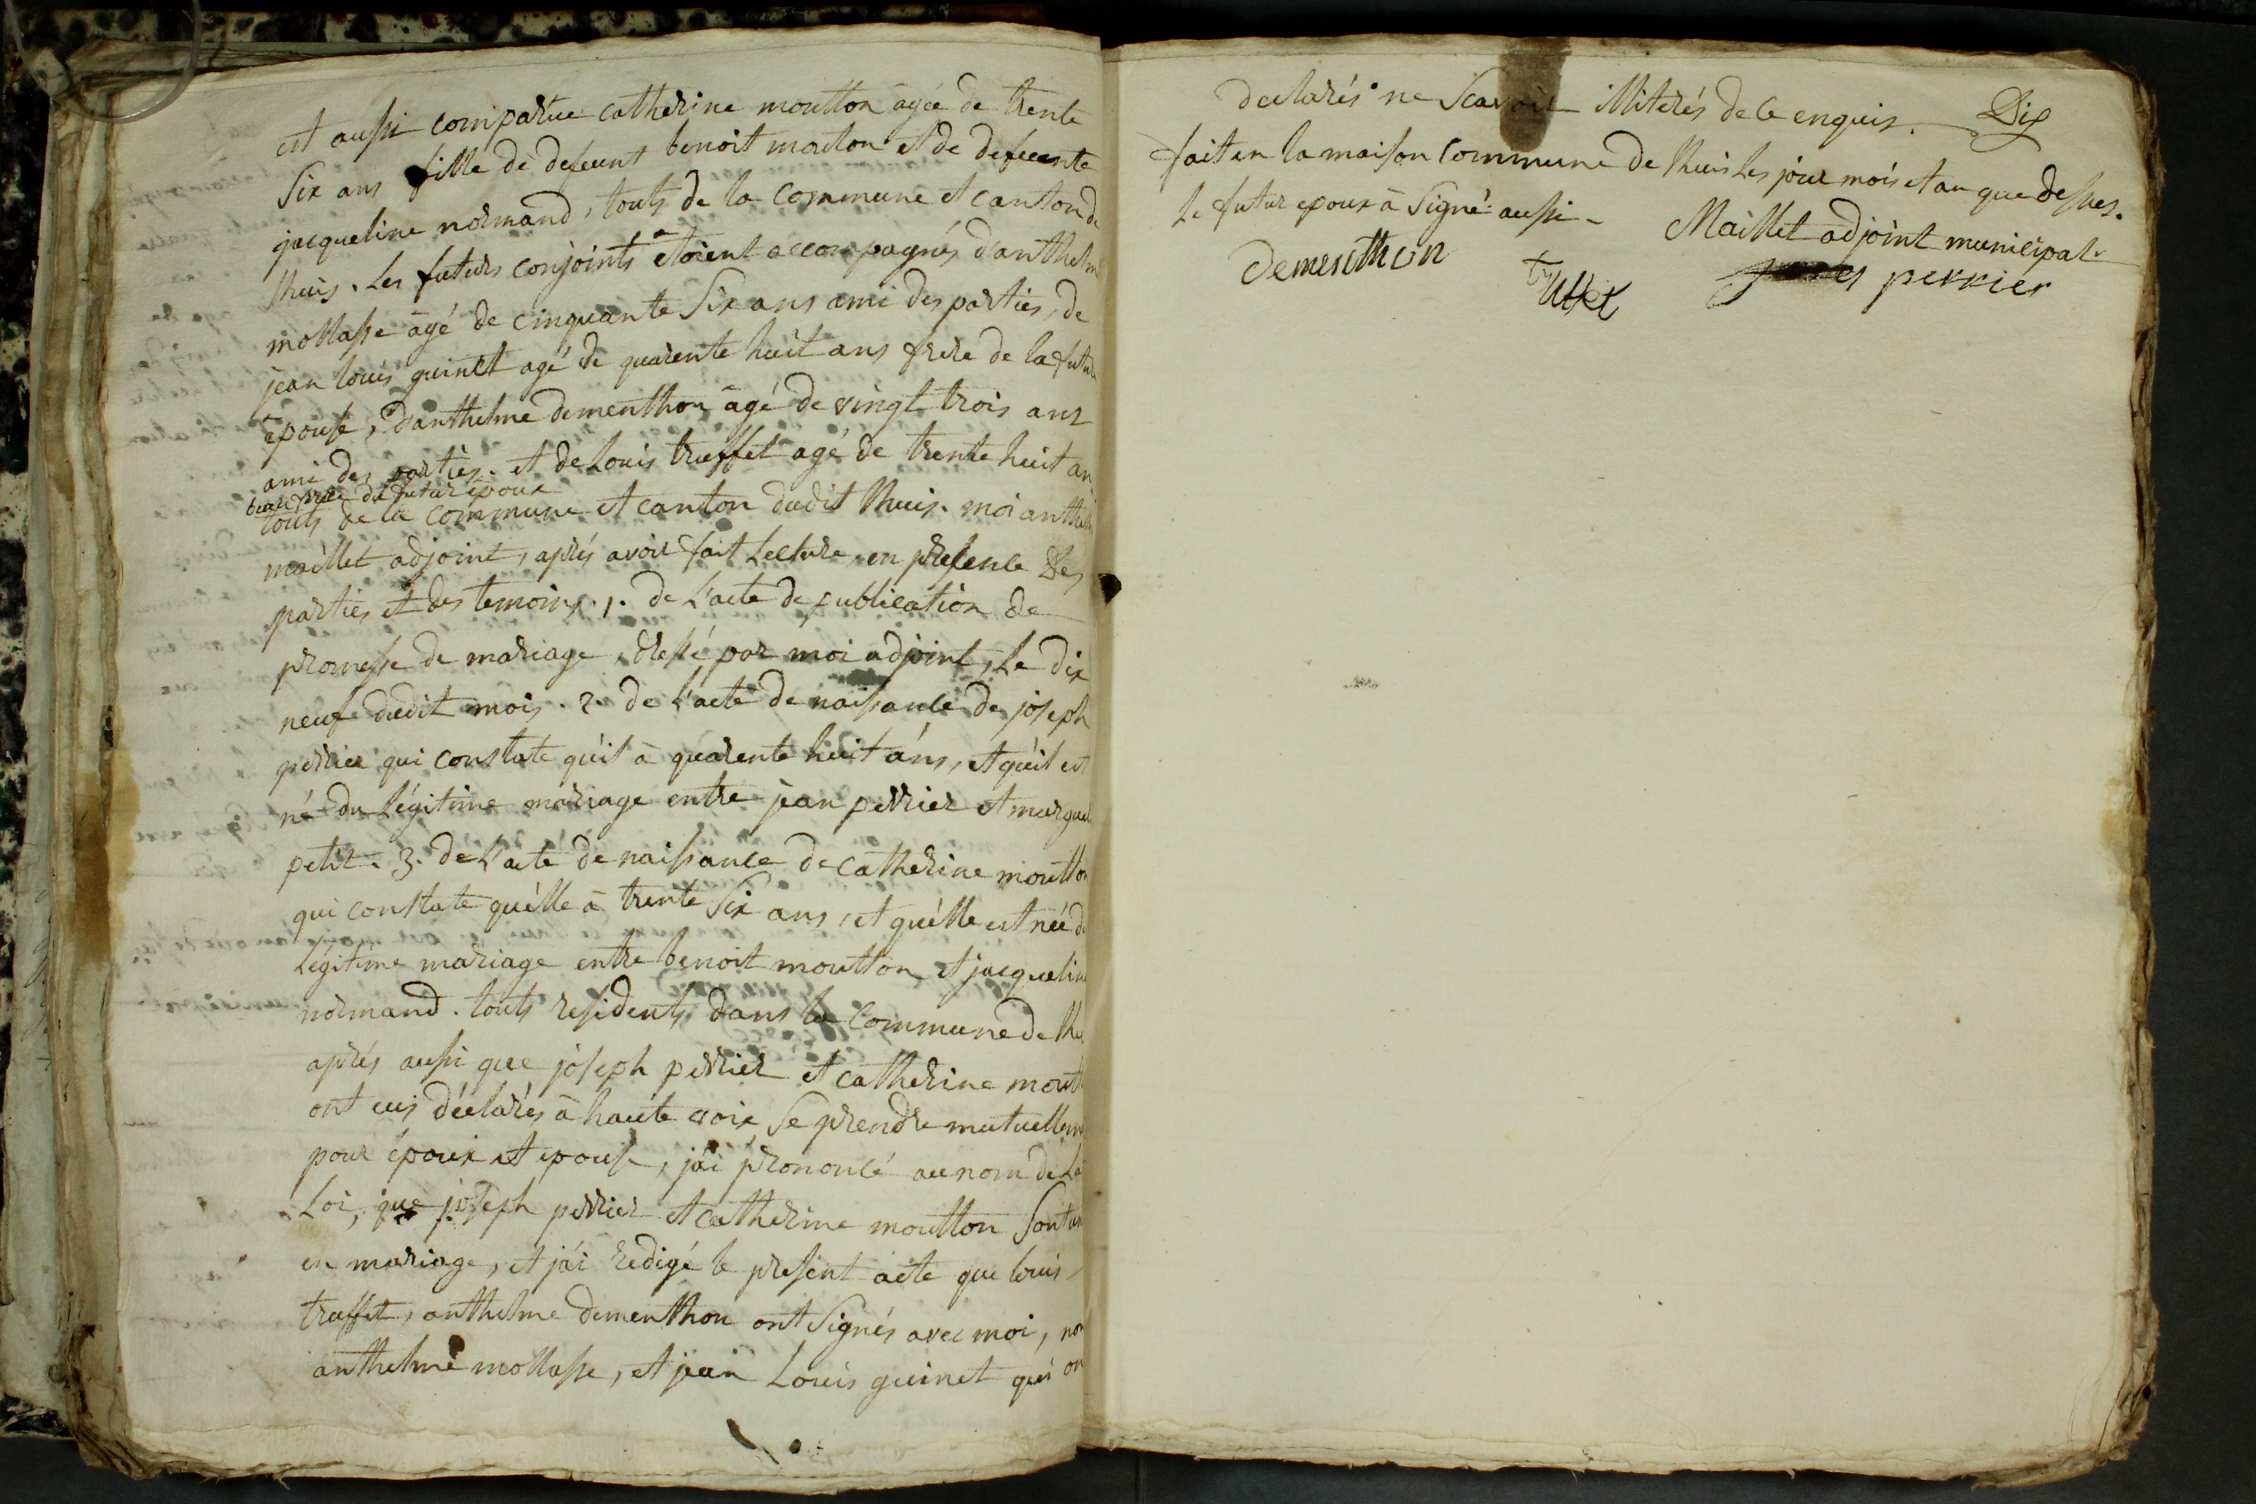 est aussi comparue catherine moutton âgée de trente
Six ans fille de defeunt benoit mouton et de defeunte
jacqueline normand, touts de la commune et canton de
lhuis. Les futurs conjoints etoient accompagnés d'anthelm
mollasse âgé de cinquante Six ans ami des parties, de
jean louis guinet agé de quarente huit ans frere de la futur
epouse, d'anthelme dementhon âgé de vingt trois ans
ami des parties. et de Louis truffet agé de trente huit an
beau frere du futur époux
touts de la commune et canton dudit lhuis. moi anthelm
maillet adjoint, aprés avoir fait Lecture en presence des
parties et des temoins. 1. de L'acte de publication de
promesse de mariage, dressé par moi adjoint, Le dix
neuf dudit mois. 2. de L'acte de naissance de joseph
perrier qui constate qu'il à quarente huit ans, et qu'il est
né du Légitime mariage entre jean perrier et margue
petit. 3. de L'acte de naissance de catherine moutton
qui constate qu'elle à trente Six ans, et qu'elle est née d
Légitime mariage entre benoit moutton et jacqueline
normand. touts residents dans la commune de lhu
aprés aussi que joseph perrier et catherine moutt
ont eus déclarés à haute voix Se prendre mutuellem
pour époux et epouse, j'ai prononcé au nom de La
Loi, que joseph perrier et catherine moutton Sont un
en mariage, et j'ai redigé le present acte que louis
truffet, anthelme dementhon ont Signés avec moi, non
anthelme mollasse, et jean Louis guinet qui on
declarés ne Scavoir illiterés de ce enquis.
fait en la maison commune de lhuis Les jour mois et an que dessus.
Le futur epoux à Signé aussi
Maillet adjoint municipal
dementhon
truffet
perrier